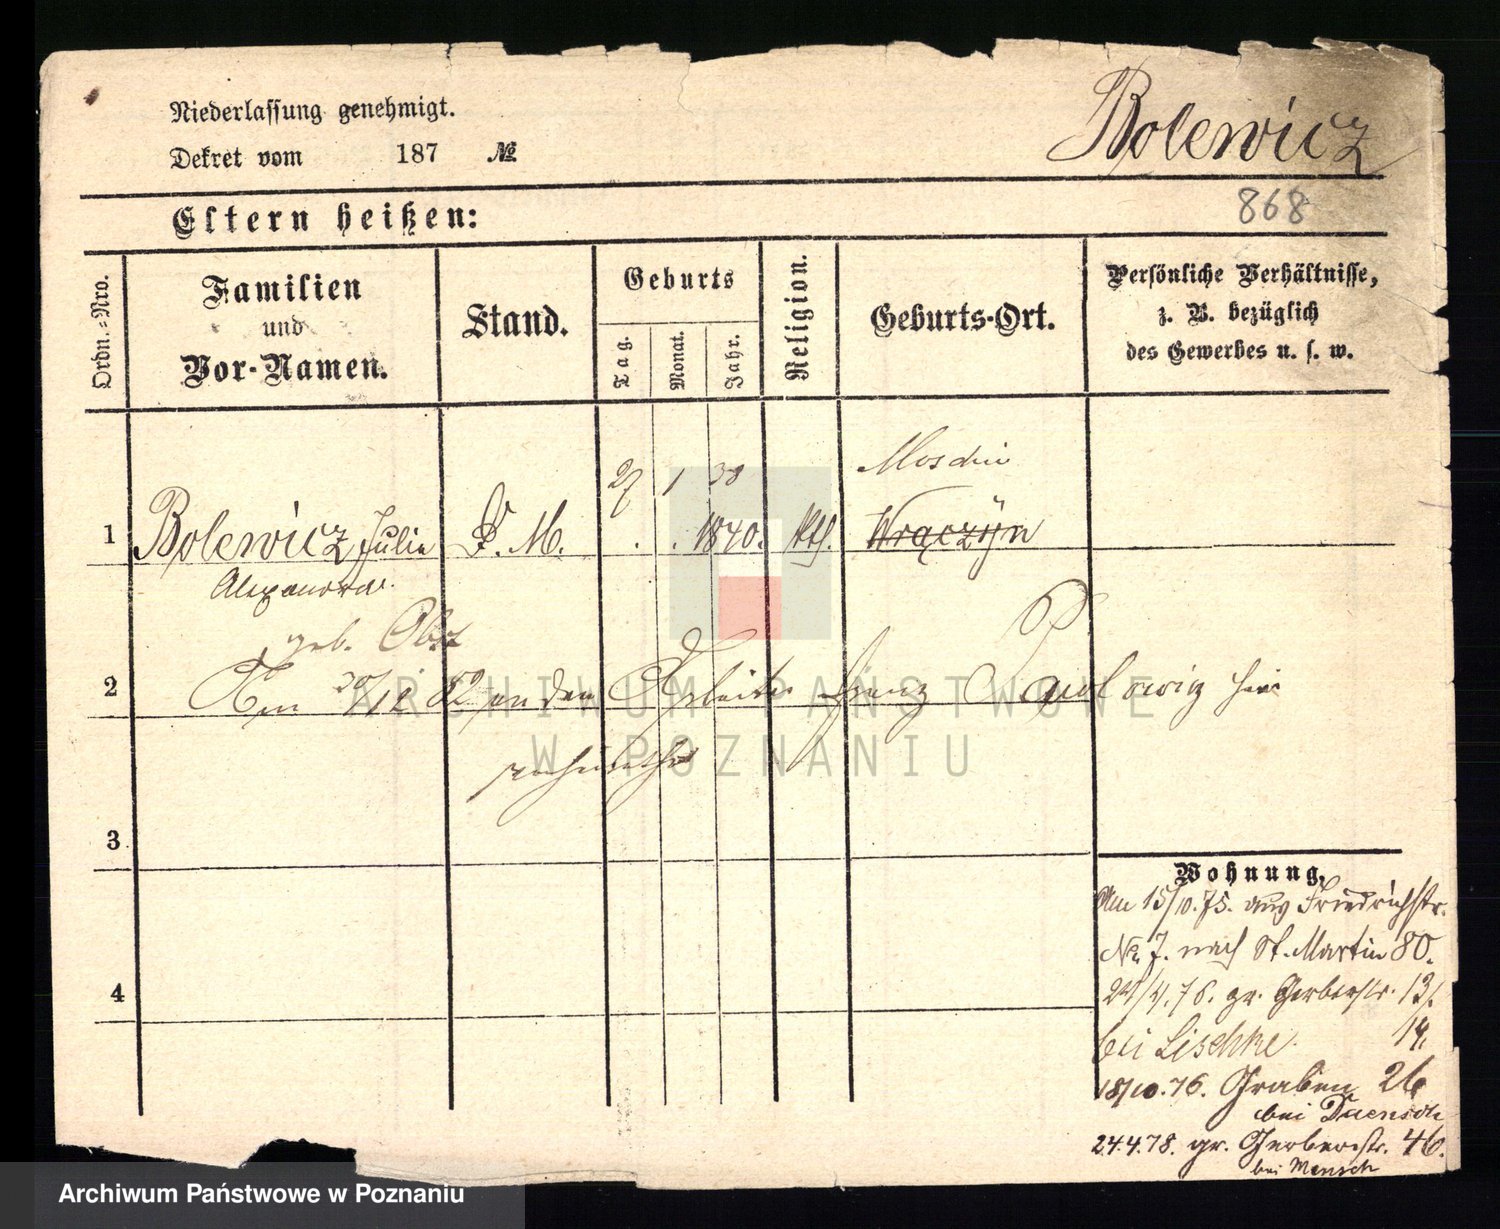 Niederlassung genehmigt.
Dekret vom 187 №
Bolewicz
868
Eltern heißen:
Ordn.-Nro.
Familien
und
Vor-Namen.
Stand.
Geburts
Tag.
Monat.
Jahr.
Religion.
Geburts-Ort.
Persönliche Verhältnisse,
z. B. bezüglich
des Gewerbes u. s. w.
27 1 38
Moschin
1 Bolewicz Julie D. M. 1840. kth. Wrączyn
Alexandra
geb. Obst
2 Am 20/12 82 an den Arbeiter Franz Pawlowicz hier
verheirathet
3
4
Wohnung.
Am 15/10.75. aus Friedrichstr.
No. 7. nach St. Martin 80.
24/4.76. gr. Gerberstr. 13/
14.
bei Lischke.
18/10.76. Graben 26
bei Daensch
24.4.78. gr. Gerberstr. 46.
bei Mensch
ARCHIWUM PAŃSTWOWE
W POZNANIU
Archiwum Państwowe w Poznaniu